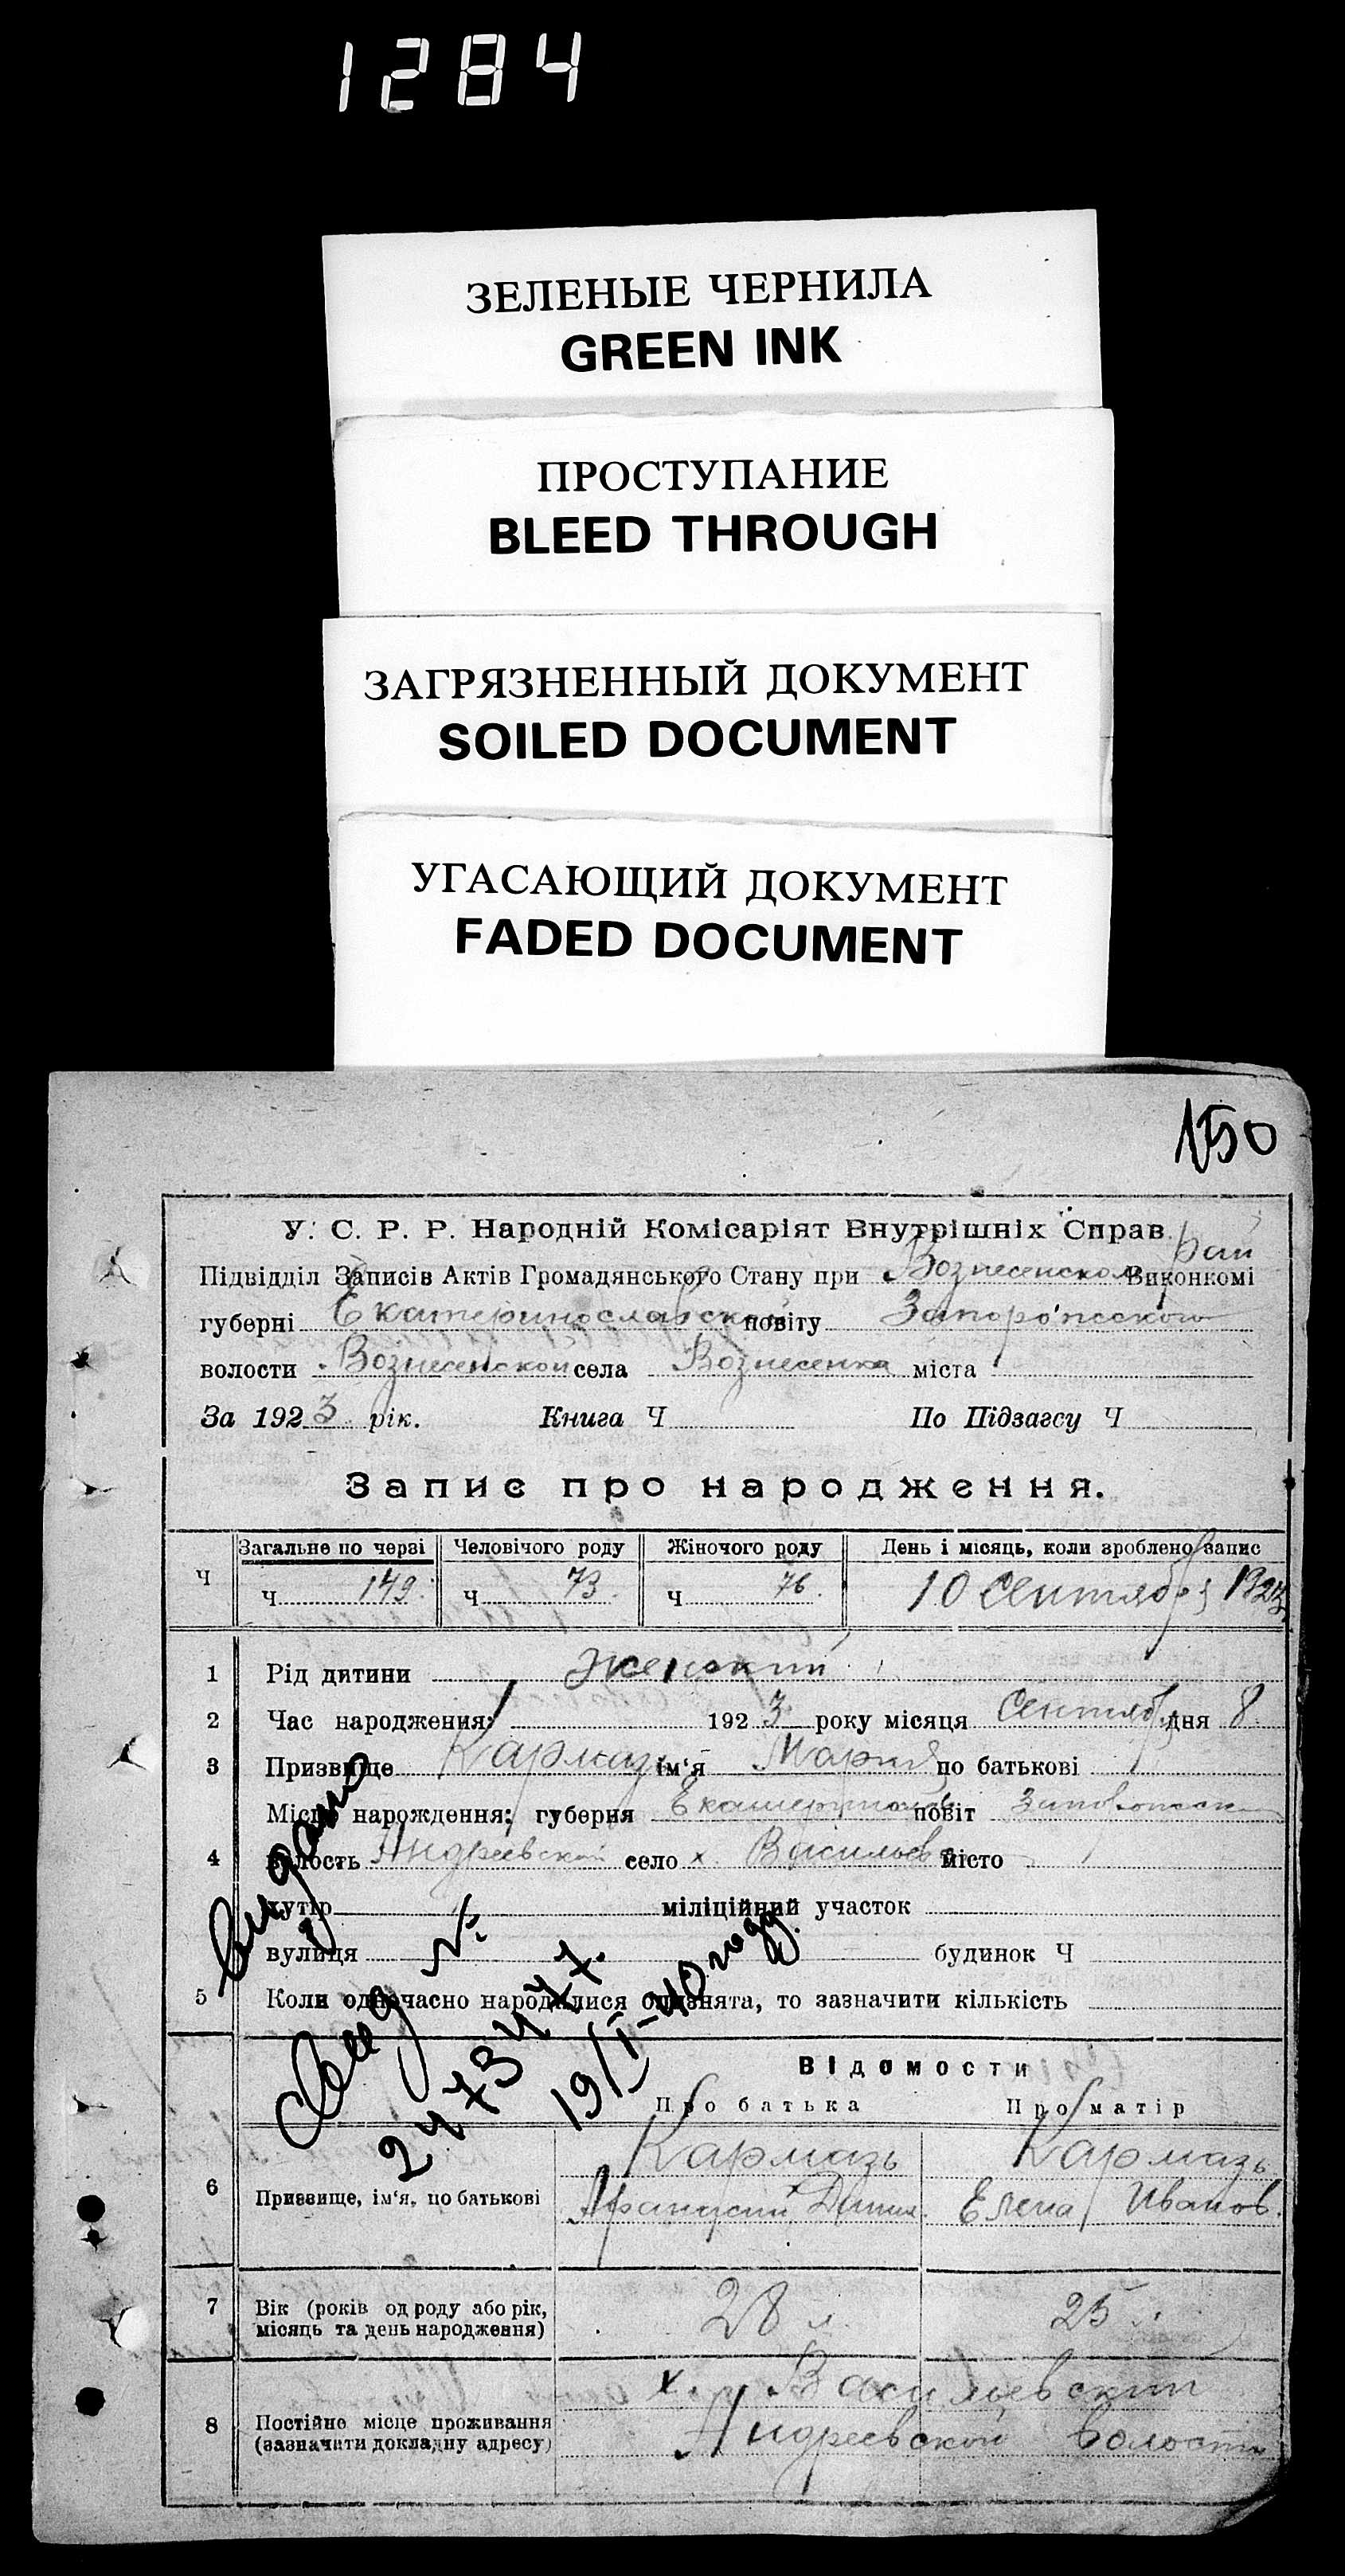 1284
ЗЕЛЕНЫЕ ЧЕРНИЛА
GREEN INK
ПРОСТУПАНИЕ
BLEED THROUGH
ЗАГРЯЗНЕННЫЙ ДОКУМЕНТ
SOILED DOCUMENT
УГАСАЮЩИЙ ДОКУМЕНТ
FADED DOCUMENT
150
У. С. Р. Р. Народній Комісаріят Внутрішніх Справ
Підвідділ Записів Актів Громадянського Стану при Вознесенском Рай Виконкомі
губерні Екатеринославской повіту Запорожского
волости Вознесенской села Вознесенка міста
За 1923 рік. Книга Ч По Підзагсу Ч
Запис про народження.
Загальне по черзі Человічого роду Жіночого роду День і місяць, коли зроблено запис
Ч Ч 149. Ч 73. Ч 76. 10 Сентября 1923
1 Рід дитини женский
2 Час народження: 1923 року місяця Сентября дня 8
3 Призвище Кармазь ім'я Мария по батькові
Місце нарождення: губерня Екатеринослав повіт Запорожский
4 волость Андреевской село х Васильев місто
хутір міліційний участок
вулиця будинок Ч
5 Коли одночасно народилися близнята, то зазначити кількість
Видано
Свед №
19/I-40 году.
Відомости
Про батька Про матір
6 Призвище, ім'я, по батькові Кармазь Кармазь
Афанасий Дани. Елена Иванов.
7 Вік (років од роду або рік, місяць та день народження) 28 л. 25 л.
8 Постійне місце проживання (зазначити докладну адресу) х. Васильевский
Андреевской волости